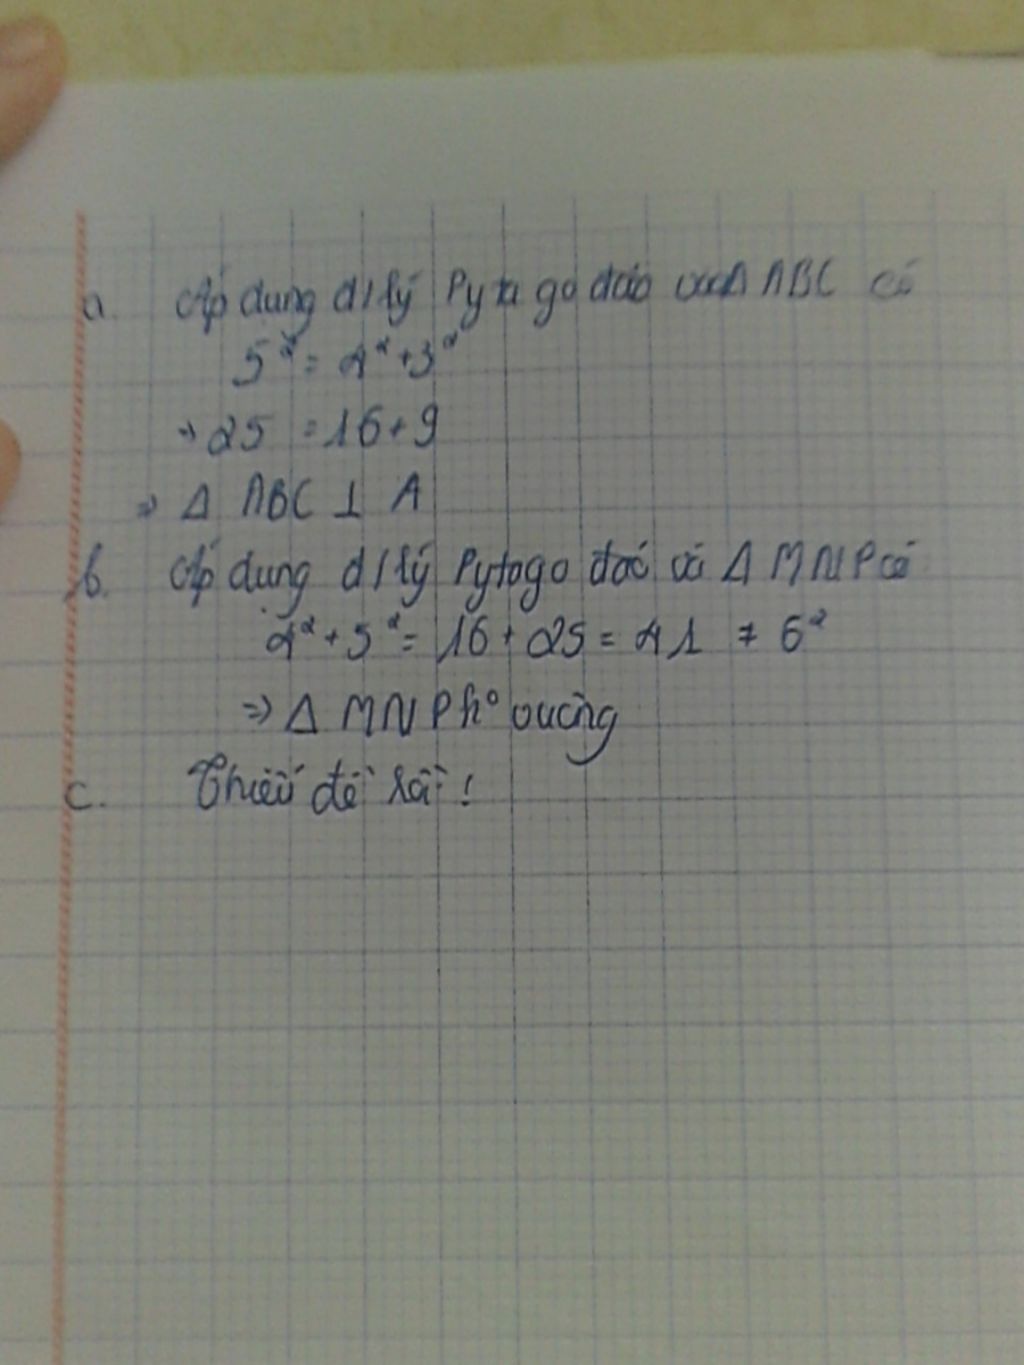 a. Áp dụng đ/lý Pytago đảo vào Δ ABC có
5² = 4² + 3²
⇒ 25 = 16 + 9
⇒ Δ ABC ⊥ A
b. Áp dụng đ/lý Pytago đảo và Δ MNP có
4² + 5² = 16 + 25 = 41 ≠ 6²
⇒ Δ MNP k° vuông
c. Thiếu đề rồi !